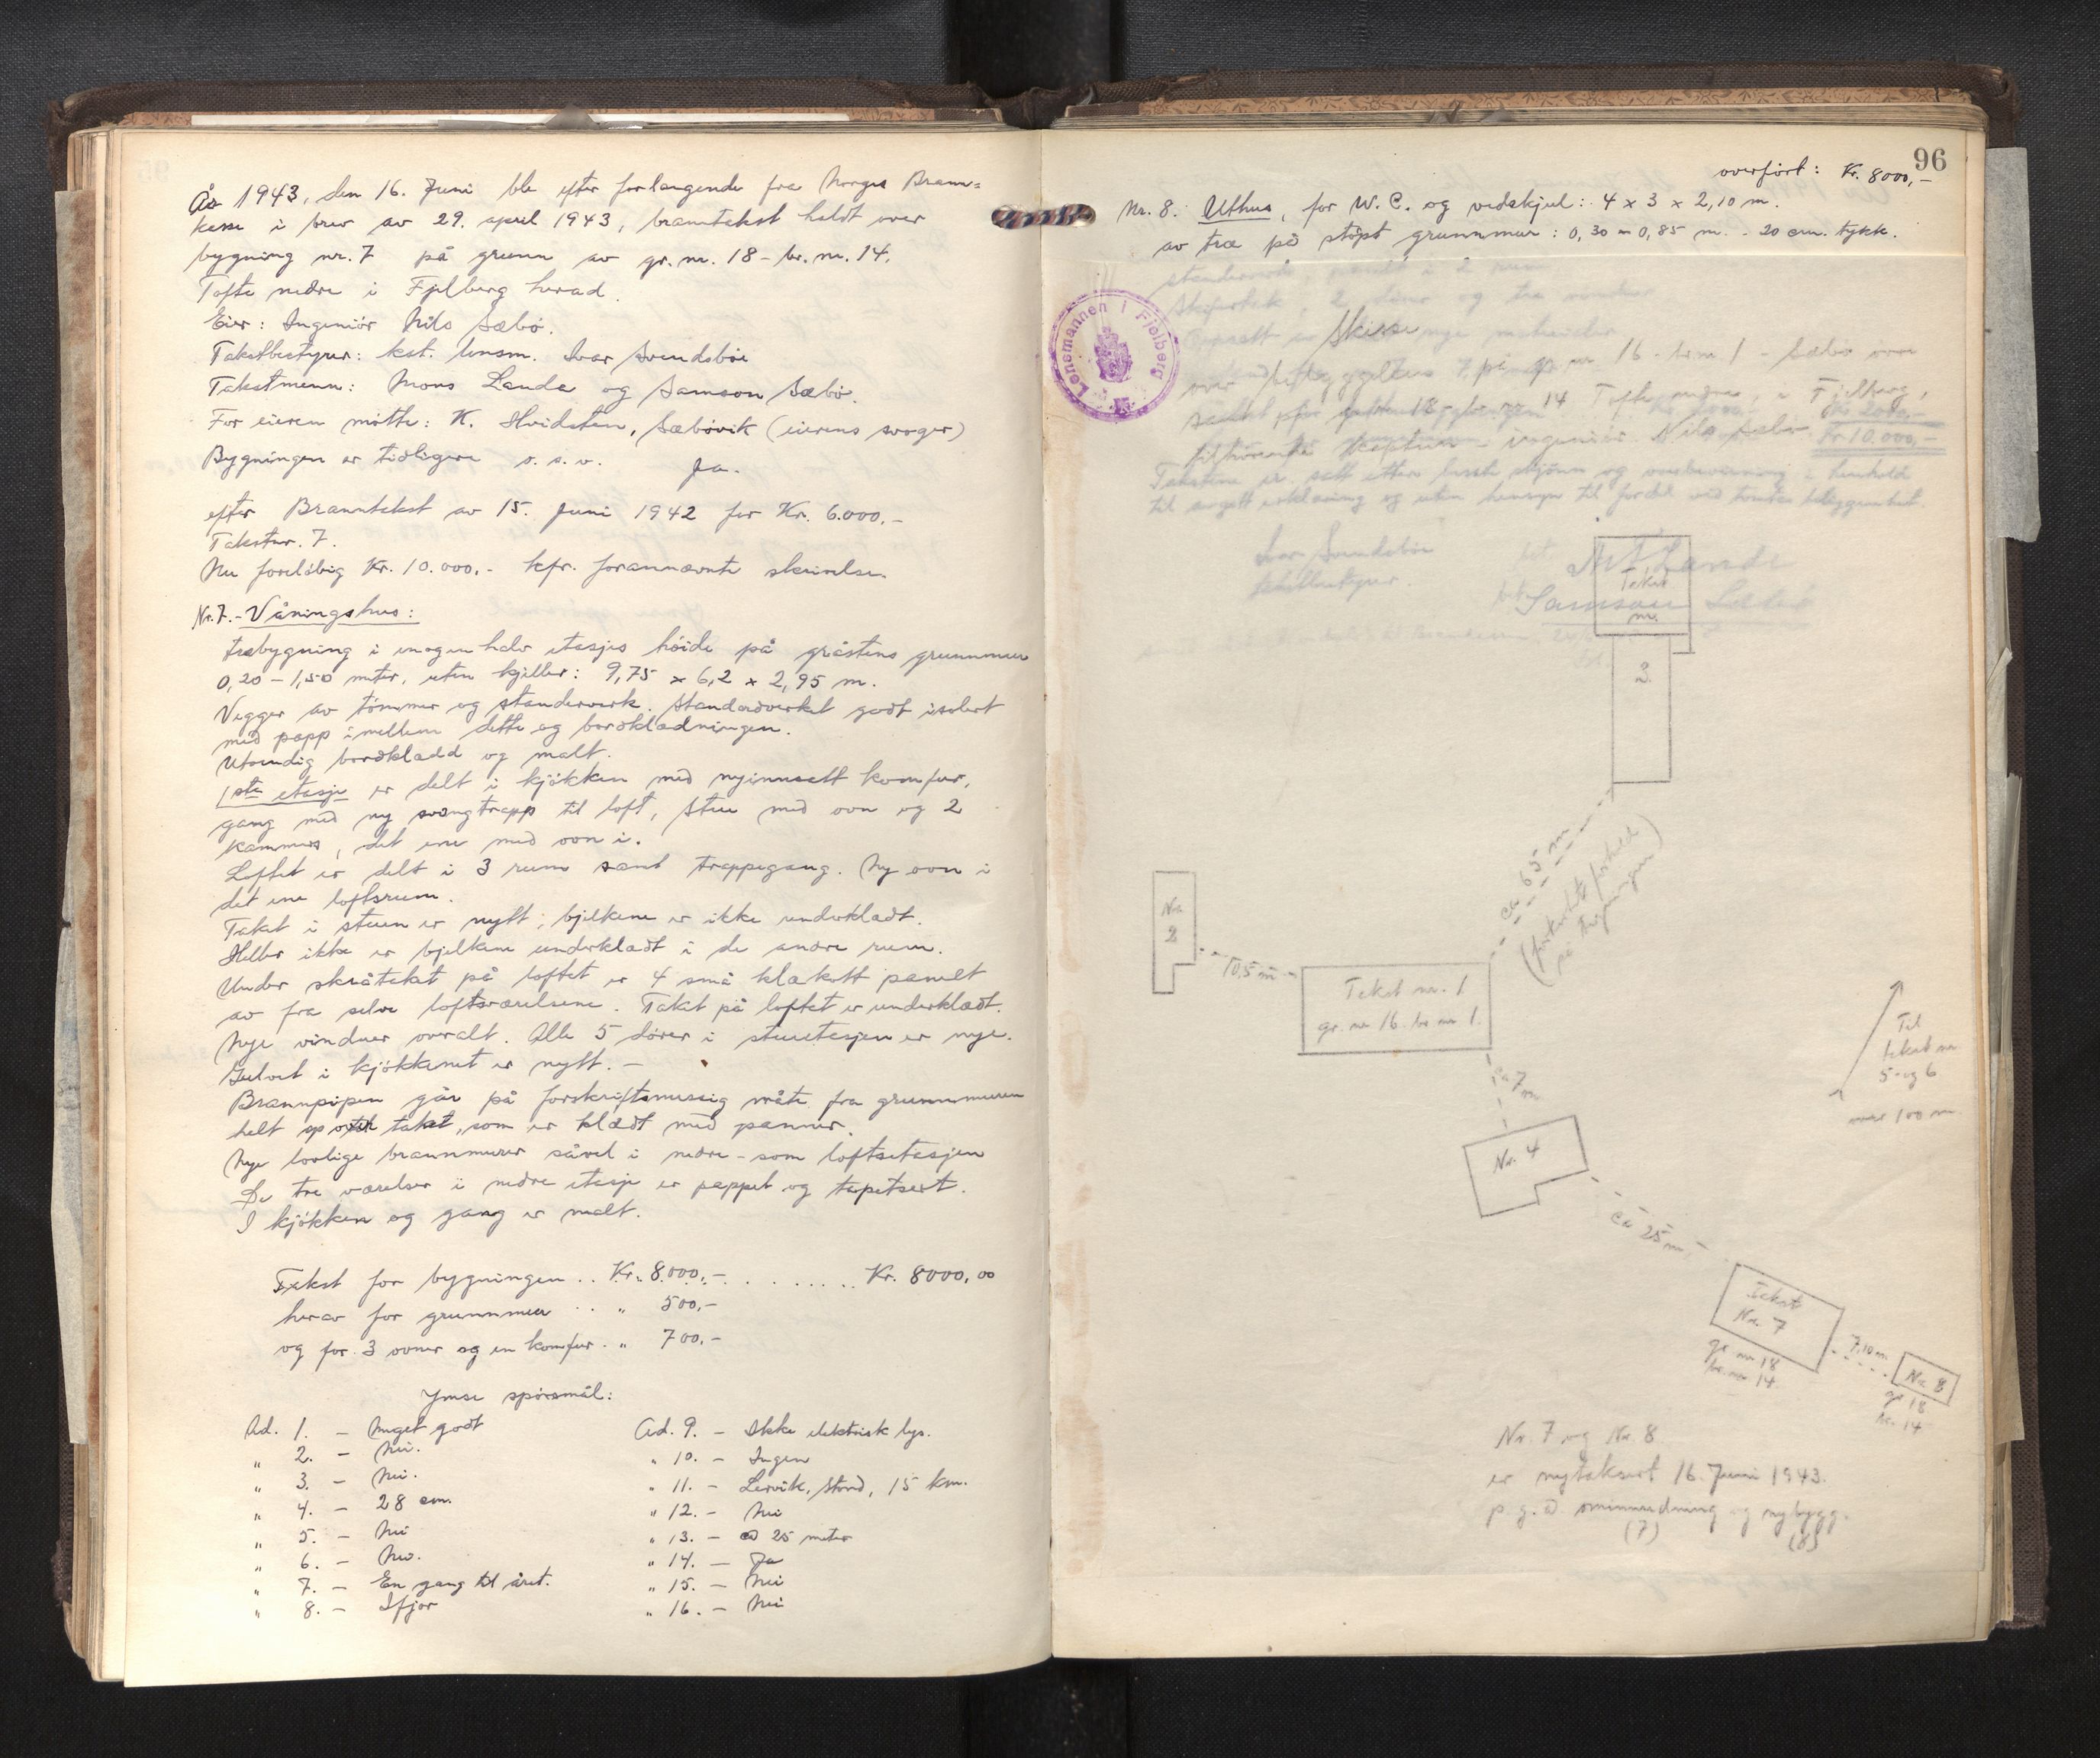 År 1943, den 16. Juni ble efter forlangende fra Norges Brann=
kasse i brev av 29. april 1943, branntakst holdt over
bygning nr. 7 på grunn av gr. nr. 18 - br. nr. 14.
Tofte nedre i Fjelberg herad.
Eier: Ingeniör Nils Sæbö.
Takstbestyrer: kst. lensm. Ivar Svendsböe
Takstmenn: Mons Lande og Samson Sæbö.
For eieren mötte: K. Hvidsten, Sæbövik (eierens svoger)
Bygningen er tidligere o. s. v. Ja.
efter Branntakst av 15. Juni 1942 for Kr. 6.000,-
Takstnr. 7.
Nu forelöbig Kr. 10.000,- kfr. forannævnte skrivelse.
Nr. 7. - Våningshus:
Træbygning i enogenhalv etasjes höide på gråstens grunnmur
0,20 - 1,50 meter, uten kjeller: 9,75 x 6,2 x 2,95 m.
Vegger av tömmer og standerverk. Standerverket godt isolert
med papp imellem dette og bordklædningen.
Utvendig bordklædd og malt.
1ste etasje er delt i kjökken med nyinnsatt komfur,
gang med ny svangtrapp til loft, stue med ovn og 2
kammers, det ene med ovn i.
Loftet er delt i 3 rum samt trappegang. Ny ovn i
det ene loftsrum.
Taket i stuen er nytt; bjelkene er ikke underklædt.
Heller ikke er bjelkene underklædt i de andre rum.
Under skråtaket på loftet er 4 små klæskott panelt
av fra selve loftsværelsene. Taket på loftet er underklædt.
Nye vinduer overalt. Alle 5 dörer i stueetasjen er nye.
Gulvet i kjökkenet er nytt. -
Brannpipen går på forskriftsmessig måte fra grunnmuren
helt op over taket, som er klædt med panner.
Nye lovlige brannmurer såvel i nedre - som loftsetasjen
De tre værelser i nedre etasje er pappet og tapetsert.
I kjökken og gang er malt.
Takst for bygningen .. Kr. 8.000,- ........ Kr. 8000,00
herav for grunnmur .. " 500,-
og for 3 ovner og en komfur . " 700,-
Ymse spörsmål:
Ad. 1. - Meget godt
" 2. - Nei.
" 3. - Nei.
" 4. - 28 cm.
" 5. - Nei
" 6. - Nei.
" 7. - En gang til året.
" 8. - Ifjor
Ad. 9. - Ikke elektrisk lys.
" 10. - Ingen
" 11. - Lervik, Stord, 15 km.
" 12. - Nei
" 13. - 25 meter
" 14. - Ja
" 15. - Nei
" 16. - Nei
96
overfört: Kr. 8000,-
Nr. 8. Uthus, for W. C. og vedskjul: 4 x 3 x 2,10 m.
av træ på stöpt grunnmur: 0,30 - 0,85 m. - 20 cm. tykk.
Lensmannen i Fjelberg
Skisse
over bebyggelsen på gr. nr. 16 - br. nr. 1 - Sæbö övre
samt på gr. nr. 18 br. nr. 14 Tofte nedre, i Fjelberg,
tilhörende ingeniör Nils Sæbö.
Kr. 2000,-
Kr. 10.000,-
Takstene er satt etter beste skjönn og overbevisning i henhold
til avgitt erklæring og uten hensyn til fordel ved tomtens beliggenhet.
Ivar Svendsböe
takstbestyrer.
M. Lande
Samson Sæbö
Takst
nr.
3.
ca 65 m
(forkortet forhold
på tegningen)
Nr.
2
10,5 m
Takst nr. 1
gr. nr 16. br nr 1.
Til
takst nr.
5 og 6
mer 100 m.
ca 7
m
Nr. 4
ca 25 m
Takst
Nr. 7
gr. nr 18
br. nr 14
7,10 m
Nr 8
gr 18
br. 14
Nr. 7 og Nr. 8
er nytaksert 16. Juni 1943.
p. g. a. ominnredning og nybygg.
(7) (8)